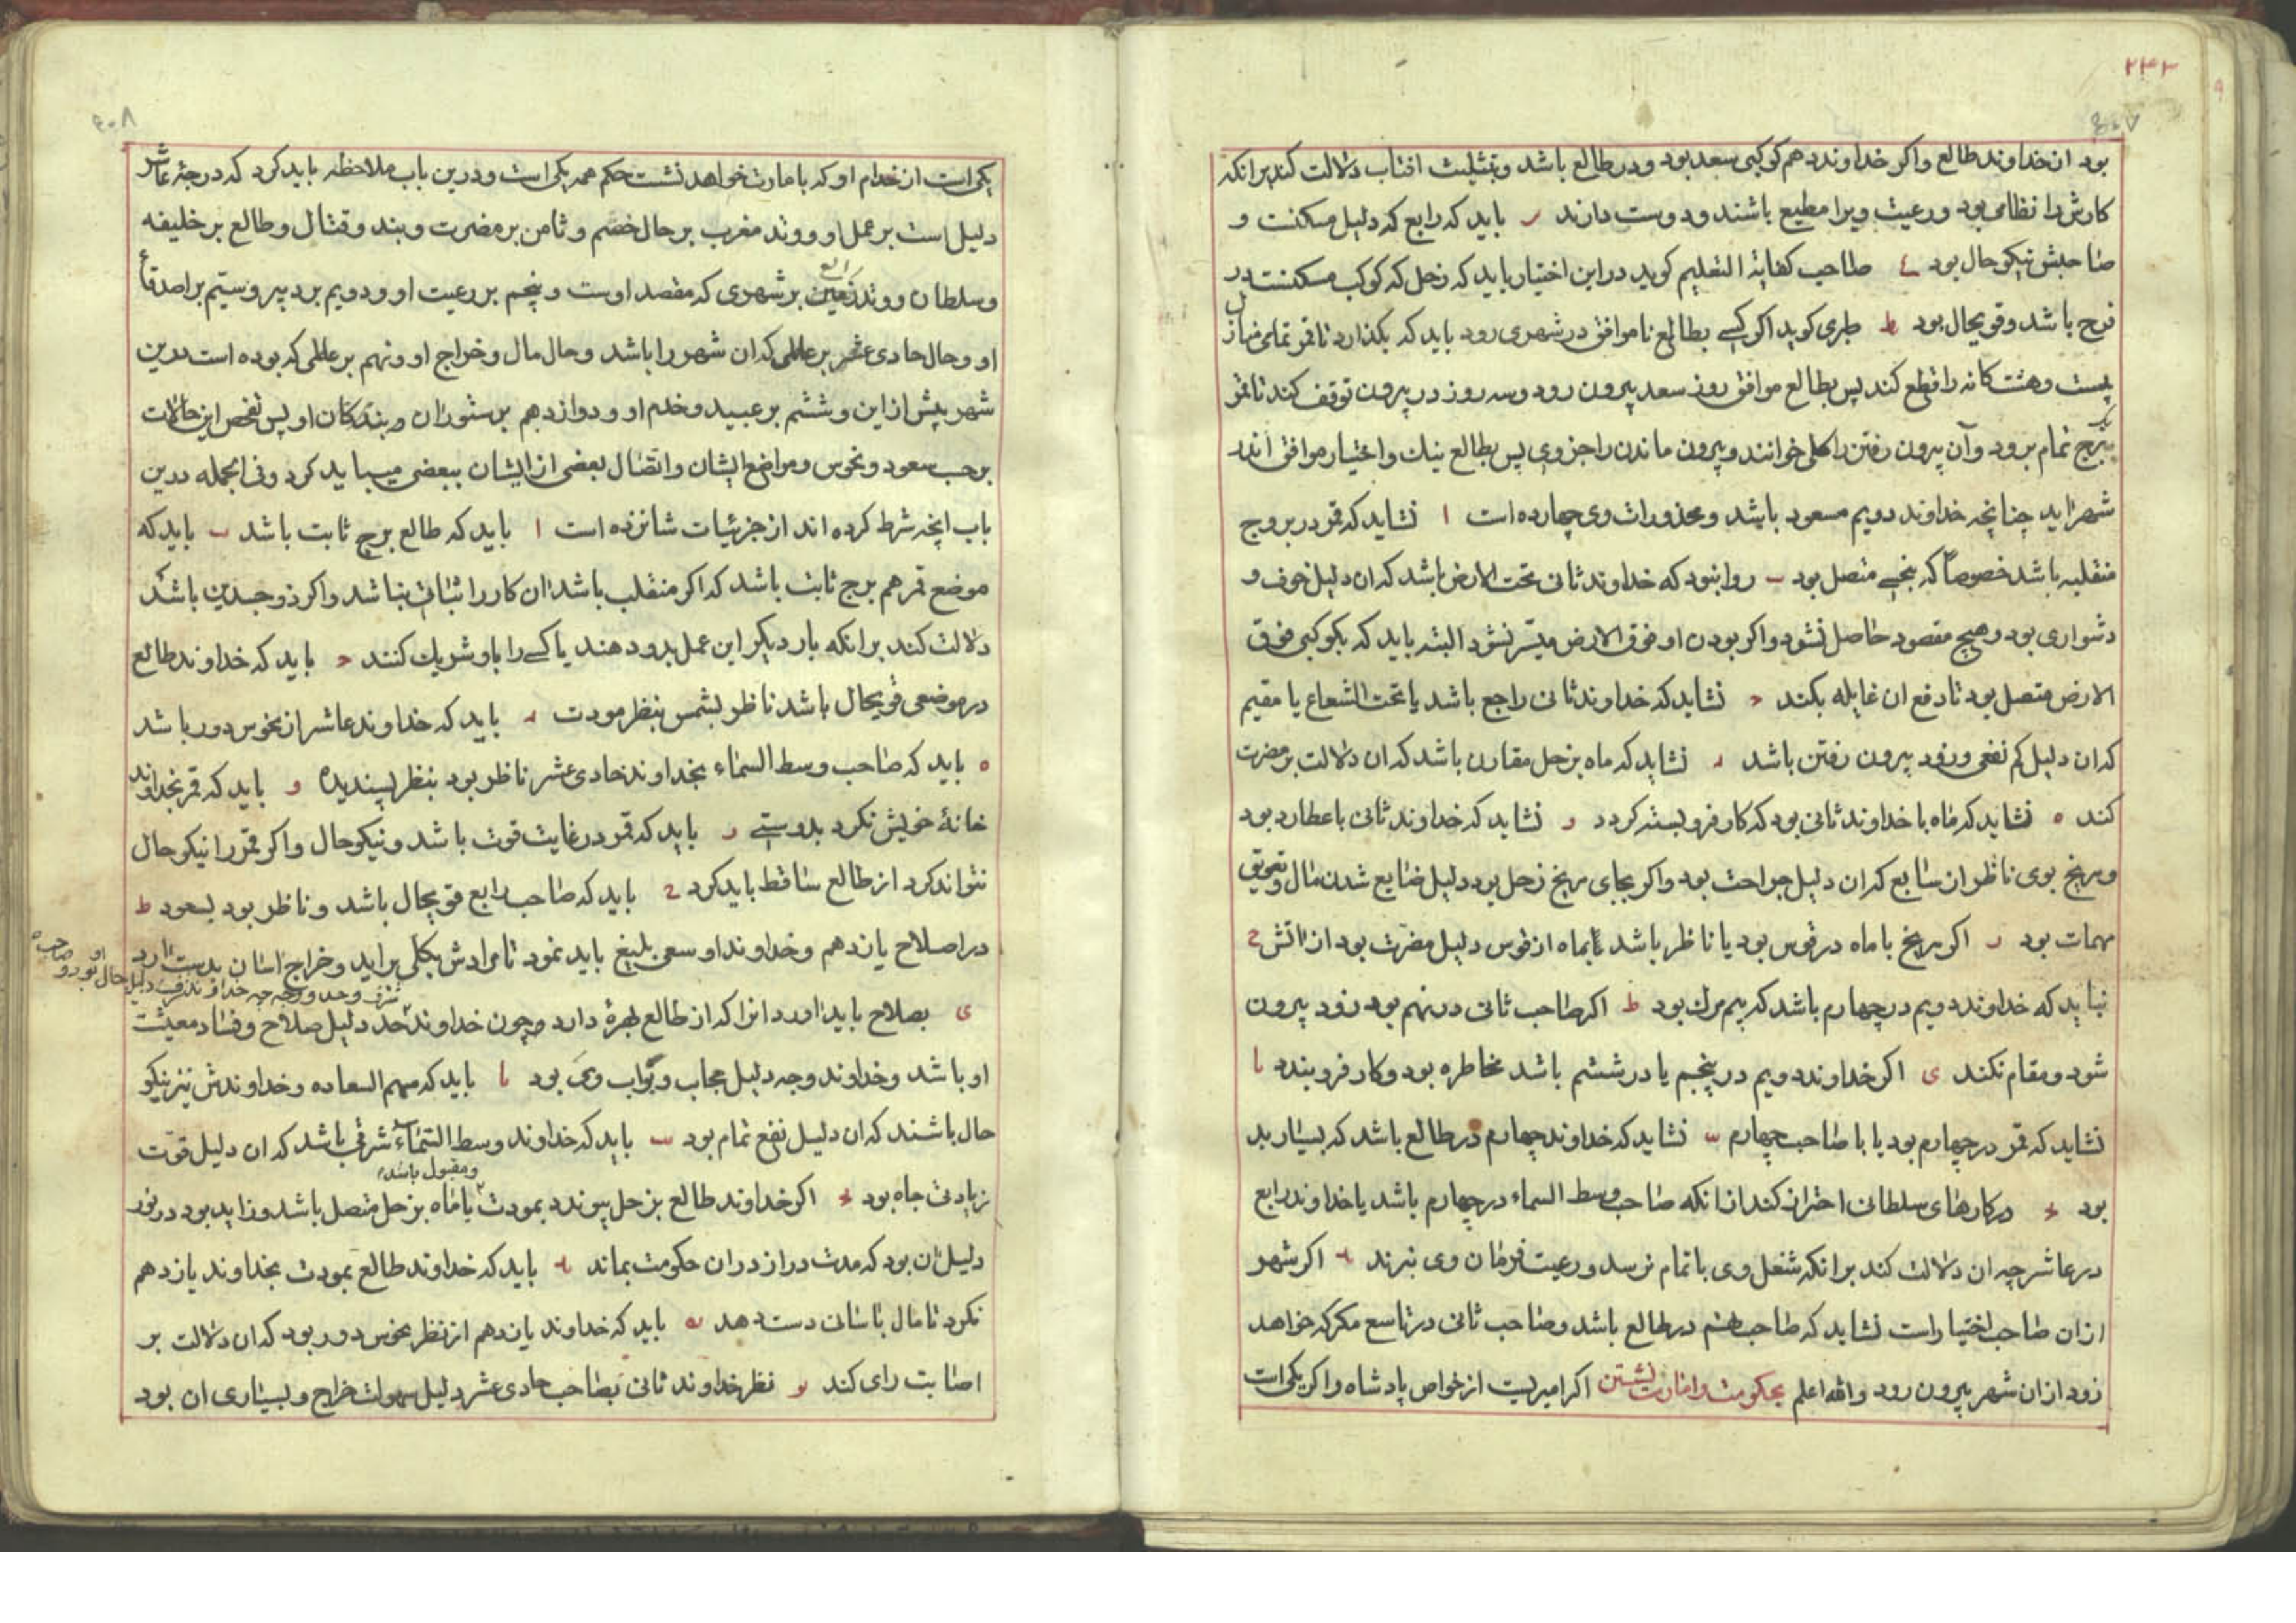 ۲۴۳
بود از خداوند طالع واکر خداوند دهم کوکبی سعد بود ودر طالع باشد وبتثلیث افتاب دلالت کند برانکه
کارش را نظامی بود ورعیت ویرا مطیع باشند ودوست دارند ر باید که رابع که دلیل مسکنت و
صاحبش نیکو حال بود صاحب کفایة التعلیم کوید در این اختیار باید که زحل که کوکب مسکنتست در
فرح باشد وقوی حال بود ط طبری کوید اکر کسی بطالع ناموافق در شهری رود باید که بکذارد تا قمر تمامی منازل
بیست وهشت کانه را قطع کند پس بطالع موافق روز سعد بیرون رود وسه روز در بیرون توقف کند تا قمر
یک برج تمام برود وآن بیرون رفتن را کلی خوانند وبیرون ماندن را جزوی پس بطالع نیک واختیار موافق اندر
شهر اید چنانچه خداوند دویم مسعود باشد ومحذورات وی چهارده است ا نشاید که قمر در بروج
منقلبه باشد خصوصاً که بنحسی متصل بود ب روا نبود که خداوند ثانی تحت الارض باشد که ان دلیل خوف و
دشواری بود وهیچ مقصود حاصل نشود واکر بودن او فوق الارض میسّر نشود البته باید که بکوکبی فوق
الارض متصل بود تا دفع ان غایله بکند ح نشاید که خداوند ثانی راجع باشد یا تحت الشعاع یا مقیم
که ان دلیل کم نفعی وزود بیرون رفتن باشد د نشاید که ماه بزحل مقارن باشد که ان دلالت بر مضرت
کند ه نشاید که ماه با خداوند ثانی بود که کار فروبسته کردد و نشاید که خداوند ثانی با عطارد بود
ومریخ بوی ناظر از سابع که ان دلیل جراحت بود واکر بجای مریخ زحل بود دلیل ضایع شدن مال وتعویق
مهمات بود ر اکر مریخ با ماه در قوس بود یا ناظر باشد بماه از قوس دلیل مضرت بود از اتش ح
نباید که خداوند دویم در چهارم باشد که بیم مرک بود ط اکر صاحب ثانی در نهم بود زود بیرون
شود ومقام نکند ی اکر خداوند دویم در پنجم یا در ششم باشد مخاطره بود وکار فروبندد یا
نشاید که قمر در چهارم بود یا با صاحب چهارم یب نشاید که خداوند چهارم در طالع باشد که بسیار بد
بود یج در کارهای سلطانی احتراز کند از انکه صاحب وسط السماء در چهارم باشد یا خداوند رابع
در عاشر چه ان دلالت کند برانکه شغل وی باتمام نرسد ورعیت فرمان وی نبرند ید اکر شهر
از ان صاحب اختیار است نشاید که صاحب هشتم در طالع باشد وصاحب ثانی در تاسع مکر که خواهد
زود از ان شهر بیرون رود والله اعلم بحکومت وامارت نشستن اکر امیریست از خواص پادشاه واکر یکی است
یکی است از خدام او که بامارت خواهد نشست حکم همه یکی است ودرین باب ملاحظه باید کرد که درجهٔ عاشر
دلیل است بر عمل او ووتد مغرب بر حال خصم وثامن بر مضرت وبند وقتال وطالع بر خلیفه
وسلطان ووتد رابع بر شهری که مقصد اوست وپنجم بر رعیت او ودویم بر دبیر وسیّم بر اصدقاء
او وحال حادی عشر بر عاملی که ان شهر را باشد وحال مال وخراج او ونهم بر عاملی که بوده است درین
شهر پیش از این وششم بر عبید وخدم او ودوازدهم بر ستوران وبندکان او پس تفحص این حالات
بر حسب سعود ونحوس ومواضع ایشان واتصال بعضی از ایشان ببعضی میباید کرد وفی الجمله درین
باب انچه شرط کرده اند از جزئیات شانزده است ا باید که طالع برج ثابت باشد ب باید که
موضع قمر هم برج ثابت باشد که اکر منقلب باشد ان کار را ثباتی نباشد واکر ذوجسدین باشد
دلالت کند برانکه بار دیکر این عمل بدو دهند یا کسی را با او شریک کنند ح باید که خداوند طالع
در موضعی قوی حال باشد ناظر بشمس بنظر مودت د باید که خداوند عاشر از نحوس دور باشد
ه باید که صاحب وسط السماء بخداوند حادی عشر ناظر بود بنظر پسندیده و باید که قمر بخداوند
خانهٔ خویش نکرد بدوستی ر باید که قمر در غایت قوت باشد ونیکو حال واکر قمر را نیکو حال
نتواند کرد از طالع ساقط باید کرد ح باید که صاحب رابع قوی حال باشد وناظر بود بسعود ط
در اصلاح یازدهم وخداوند او سعی بلیغ باید نمود تا مرادش بکلی براید وخراج اسان بدست ارد
ی بصلاح باید اورد انرا که از طالع بهرهٔ دارد وچون خداوند حد دلیل صلاح وفساد معیشت
او باشد وخداوند وجه دلیل حجاب وبوّاب وی بود یا باید که سهم السعاده وخداوندش نیز نیکو
حال باشند که ان دلیل نفع تمام بود یب باید که خداوند وسط السماء شرقی باشد که ان دلیل قوّت
ومقبول باشد
زیادتی جاه بود یج اکر خداوند طالع بزحل پیوندد بمودت یا ماه بزحل متصل باشد وزاید بود در نور
دلیل ان بود که مدت دراز در ان حکومت بماند ید باید که خداوند طالع بمودت بخداوند یازدهم
نکرد تا مال باسانی دست دهد یه باید که خداوند یازدهم از نظر نحوس دور بود که ان دلالت بر
اصابت رای کند یو نظر خداوند ثانی بصاحب حادی عشر دلیل سهولت خراج وبسیاری ان بود